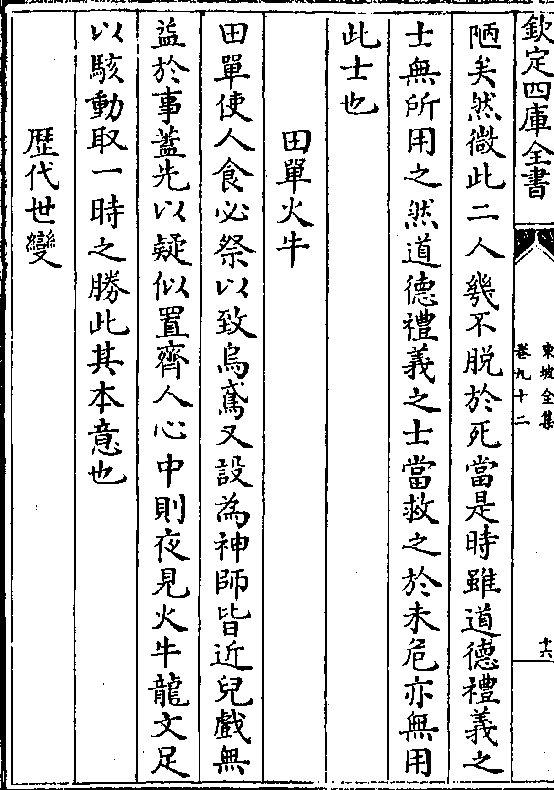 欽定四庫全書
東坡全集
卷九十二
十六
陋矣然微此二人幾不脱於死當是時雖道德禮義之
士無所用之然道德禮義之士當救之於未危亦無用
此士也
田單火牛
田單使人食必祭以致烏鳶又設為神師皆近兒戲無
益於事葢先以疑似置齊人心中則夜見火牛龍文足
以駭動取一時之勝此其本意也
歴代世變